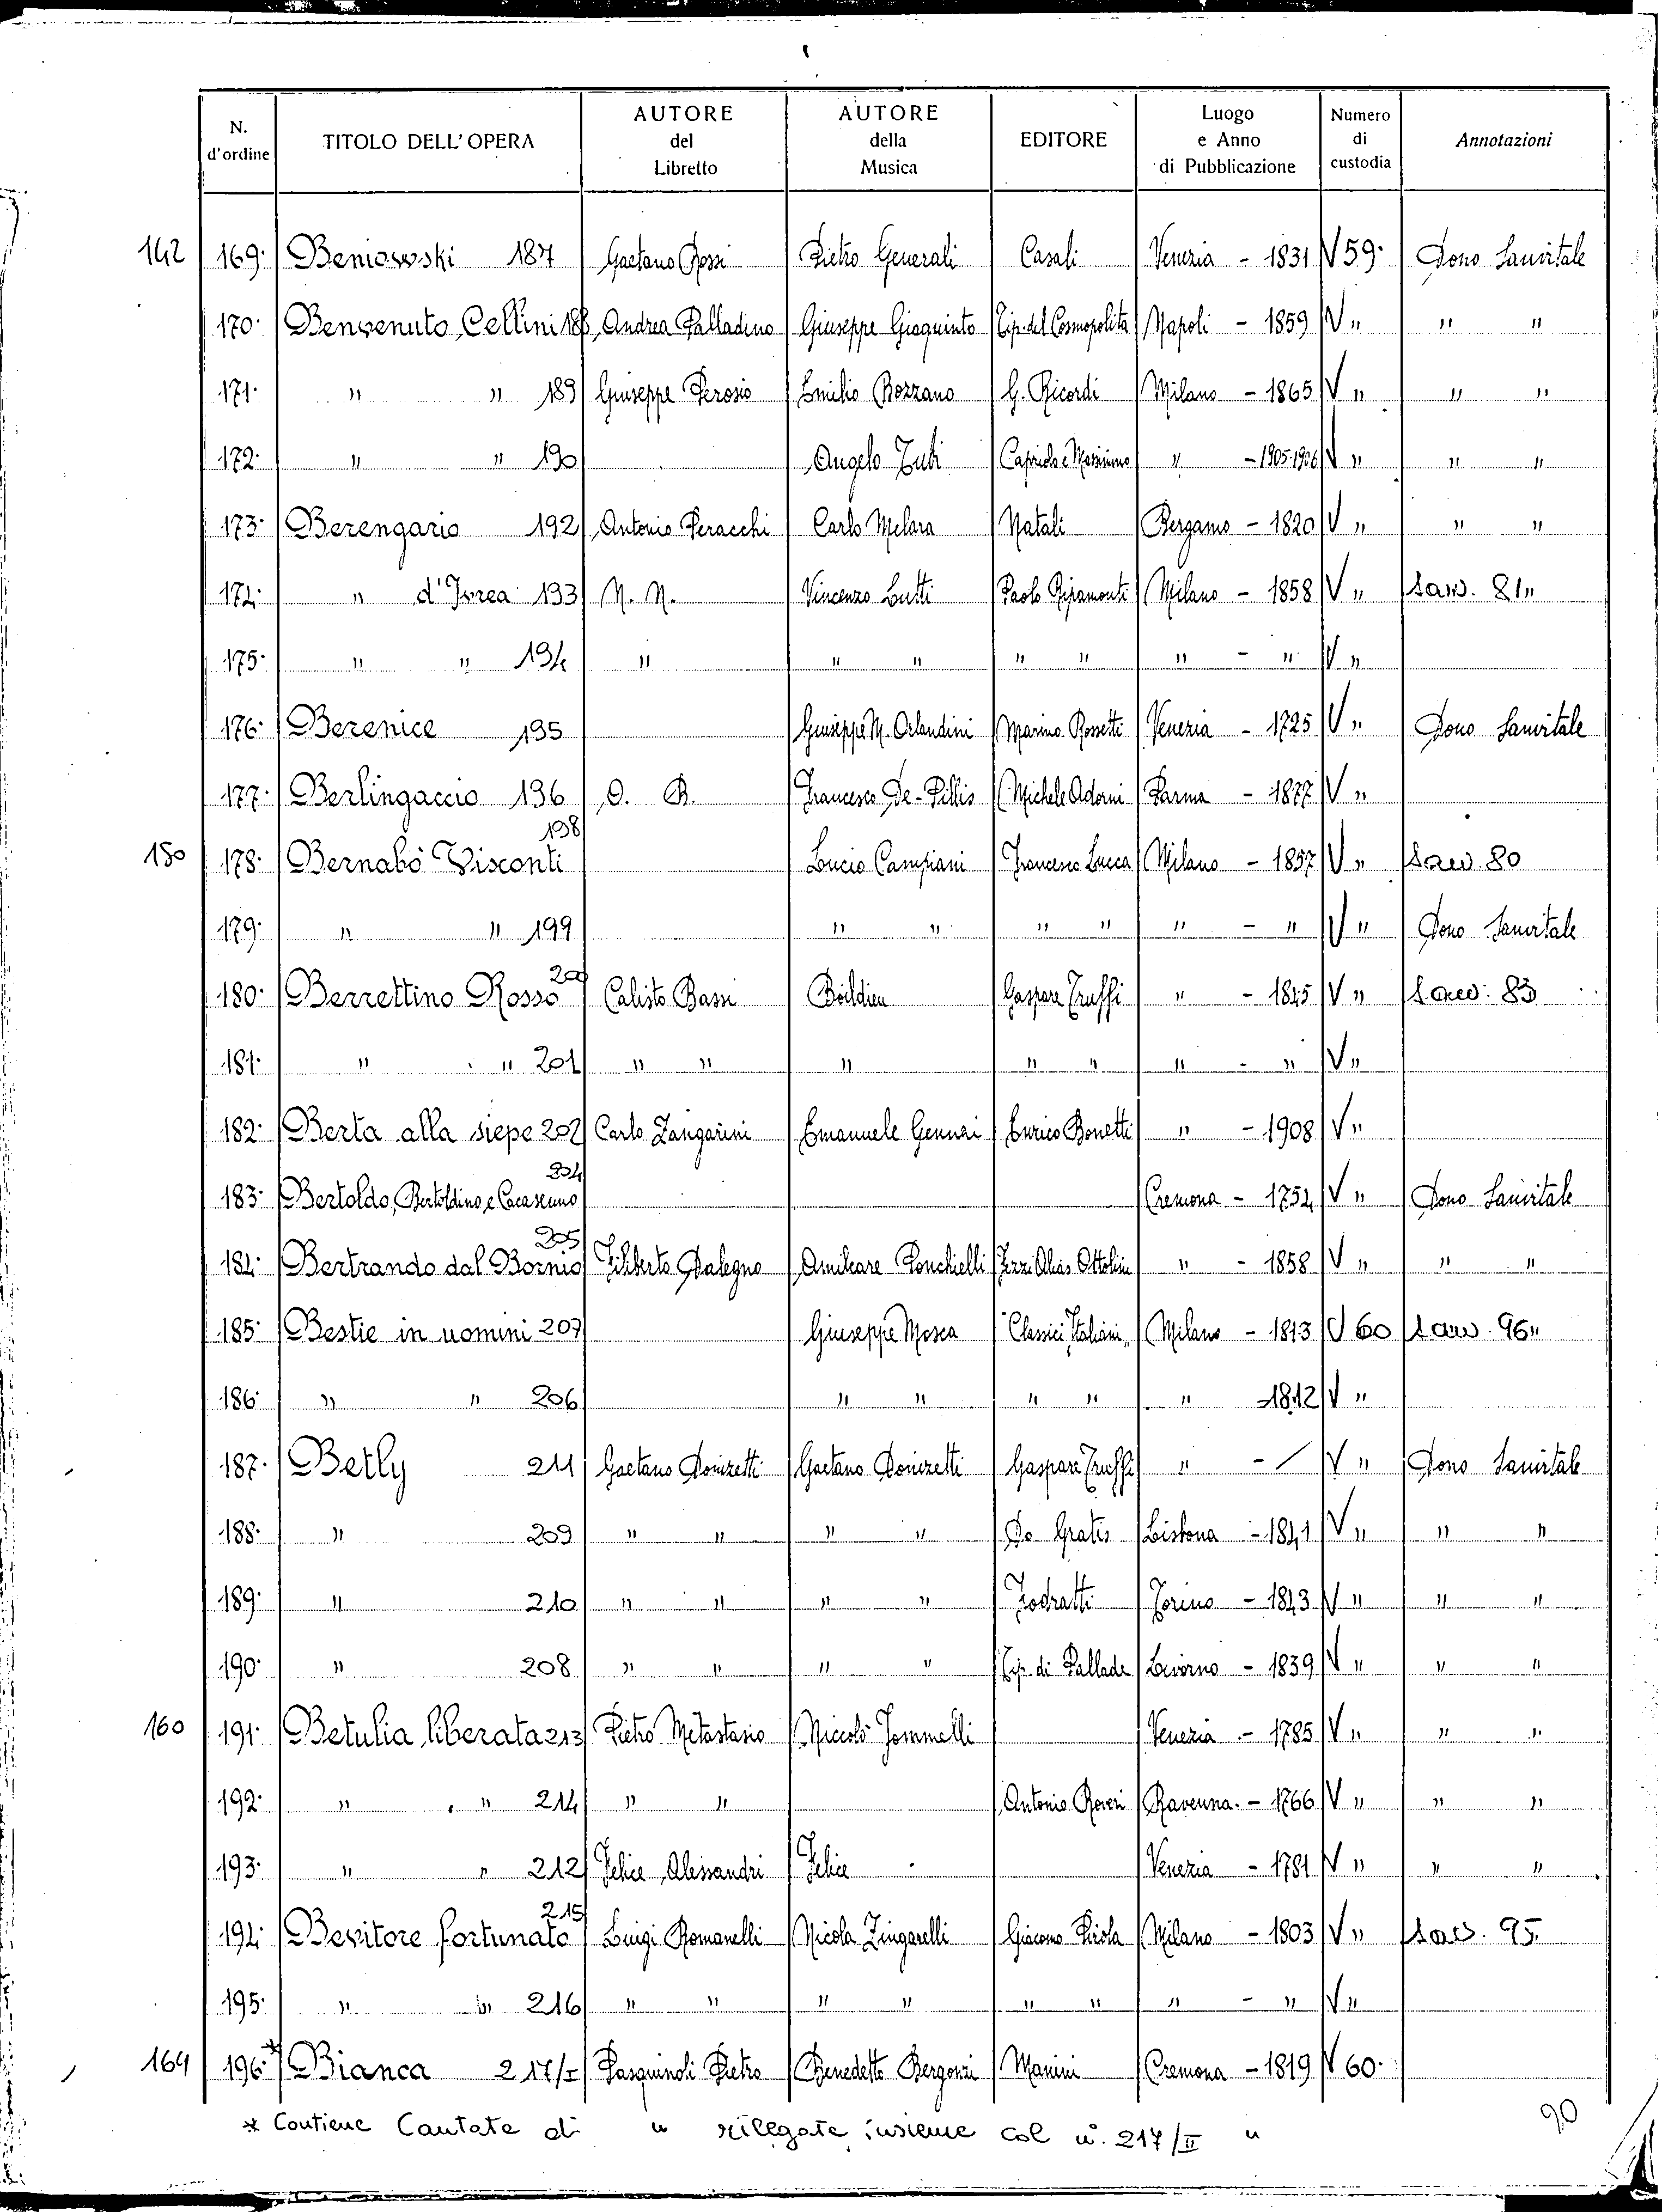 N. d'ordine | TITOLO DELL'OPERA | AUTORE del Libretto | AUTORE della Musica | EDITORE | Luogo e Anno di Pubblicazione | Numero di custodia | Annotazioni
142 169. Beniowski 187 Gaetano Rossi Pietro Generali Casali Venezia - 1831 V 59. Dono Sanvitale
170. Benvenuto Cellini 188 Andrea Palladino Giuseppe Giaquinto Tip. del Cosmopolita Napoli - 1859 V " " "
171. " " 189 Giuseppe Perosio Emilio Bozzano G. Ricordi Milano - 1865 V " " "
172. " " 190 Angelo Tubi " - 1905-1906 V " " "
173. Berengario 192 Antonio Peracchi Carlo Melara Natali Bergamo - 1820 V " " "
174. " d'Ivrea 193 N. N. Vincenzo Lutti Paolo Ripamonti Milano - 1858 V " 81"
175. " " 194 " " " " " " - " V "
176. Berenice 195 Giuseppe M. Orlandini Marino Rossetti Venezia - 1725 V " Dono Sanvitale
177. Berlingaccio 196 O. B. Francesco De-Pillis Michele Adorni Parma - 1877 V "
198
150 178. Bernabò Visconti Lucio Campiani Francesco Lucca Milano - 1857 V " 80
179. " " 199 " " " " " - " V " Dono Sanvitale
200
180. Berrettino Rosso Calisto Bassi Boildieu Gaspare Truffi " - 1845 V " 83
181. " " 201 " " " " " " - " V "
182. Berta alla siepe 202 Carlo Zangarini Emanuele Gennai Enrico Bonetti " - 1908 V "
204
183. Bertoldo, Bertoldino, e Cacasenno Cremona - 1754 V " Dono Sanvitale
205
184. Bertrando dal Bornio Filiberto Dalegno Amilcare Ponchielli Ottolini " - 1858 V " " "
185. Bestie in uomini 207 Giuseppe Mosca "Classici Italiani" Milano - 1813 V 60 96"
186. " " 206 " " " " " - 1812 V "
187. Betly 211 Gaetano Donizetti Gaetano Donizetti Gaspare Truffi " - / V " Dono Sanvitale
188. " 209 " " " " De Gratis Lisbona - 1841 V " " "
189. " 210 " " " " Fodratti Torino - 1843 V " " "
190. " 208 " " " " Tip. di Pallade Livorno - 1839 V " " "
160 191. Betulia liberata 213 Pietro Metastasio Niccolò Jommelli Venezia - 1785 V " " "
192. " " 214 " " Antonio Raveuna. - 1766 V " " "
193. " " 212 Felice Alessandri Felice Venezia - 1781 V " " "
215
194. Bevitore fortunato Luigi Romanelli Nicola Zingarelli Giacomo Pirola Milano - 1803 V " 95.
195. " " 216 " " " " " " " - " V "
164 196.* Bianca 217/I Pasquinoli Pietro Benedetto Bergonzi Manini Cremona - 1819 V 60.
* Contiene Cantate di " rilegate insieme col n°. 217/II "
90